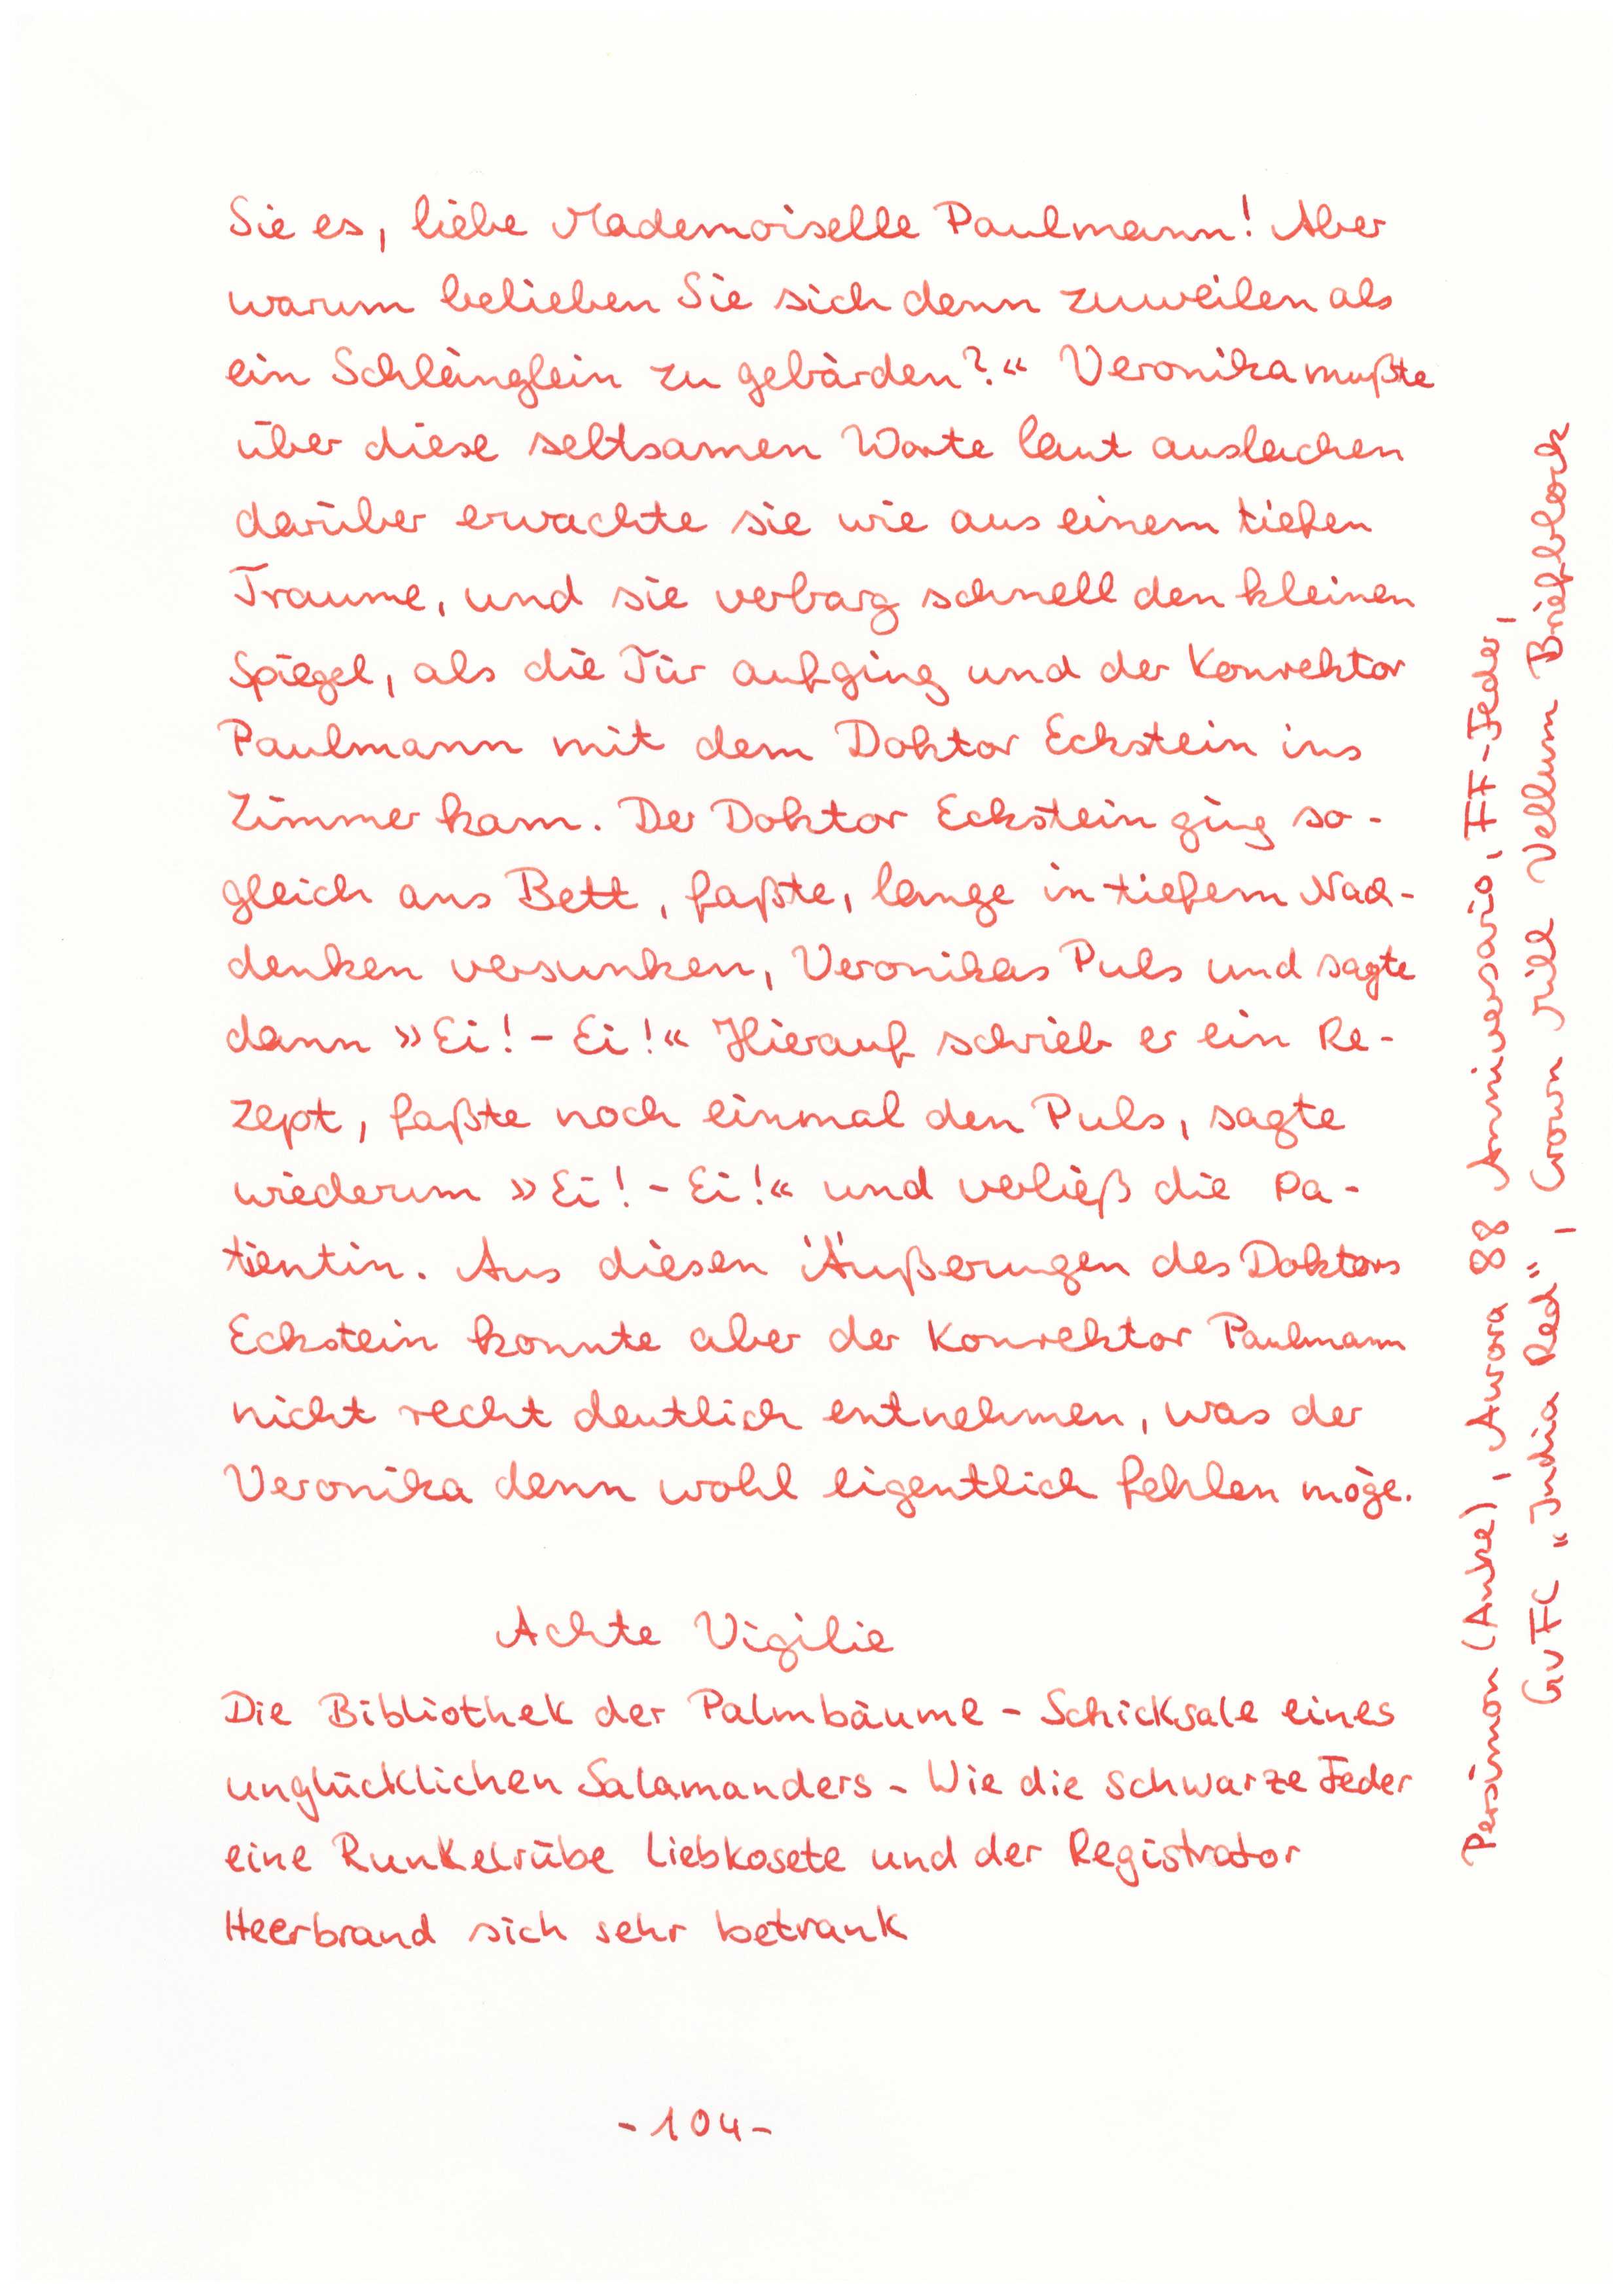 Sie es, liebe Mademoiselle Paulmann! Aber
warum belieben Sie sich denn zuweilen als
ein Schlänglein zu gebärden?« Veronika mußte
über diese seltsamen Worte laut auslachen
darüber erwachte sie wie aus einem tiefen
Traume, und sie verbarg schnell den kleinen
Spiegel, als die Tür aufging und der Konrektor
Paulmann mit dem Doktor Eckstein ins
Zimmer kam. Der Doktor Eckstein ging so-
gleich ans Bett, faßte, lange in tiefem Nach-
denken versunken, Veronikas Puls und sagte
dann »Ei! - Ei!« Hierauf schrieb er ein Re-
zept, faßte noch einmal den Puls, sagte
wiederum »Ei! - Ei!« und verließ die Pa-
tientin. Aus diesen Äußerungen des Doktors
Eckstein konnte aber der Konrektor Paulmann
nicht recht deutlich entnehmen, was der
Veronika denn wohl eigentlich fehlen möge.
Achte Vigilie
Die Bibliothek der Palmbäume - Schicksale eines
unglücklichen Salamanders - Wie die schwarze Feder
eine Runkelrübe liebkosete und der Registrator
Heerbrand sich sehr betrank
- 104 -
Persimmon (Anke), Aurora 88 Anniversario, FF-Feder,
GvFC „India Red", Crown Mill Vellum Briefblock